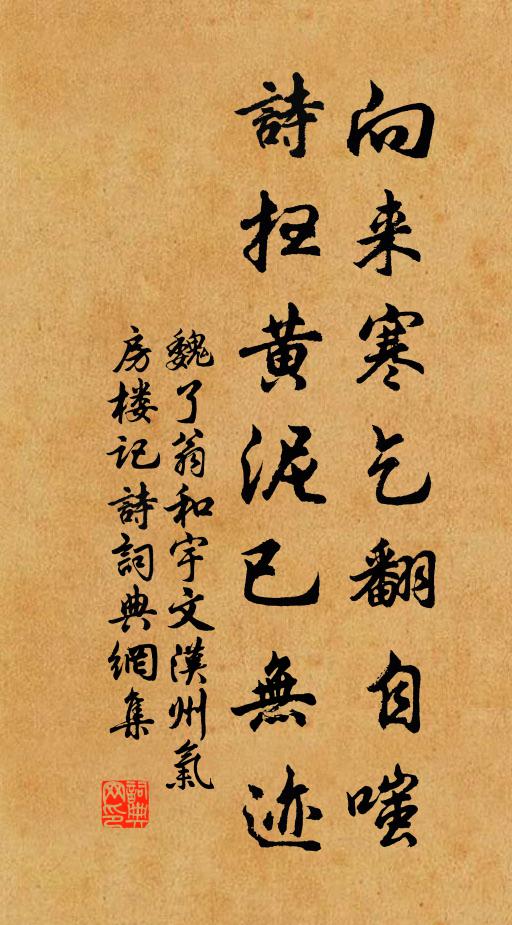 向来寒乞翻自嗤
詩扫黄泥已無迹
魏了翁和宇文漢州氣
房楼记詩詞典網集
詞典网印